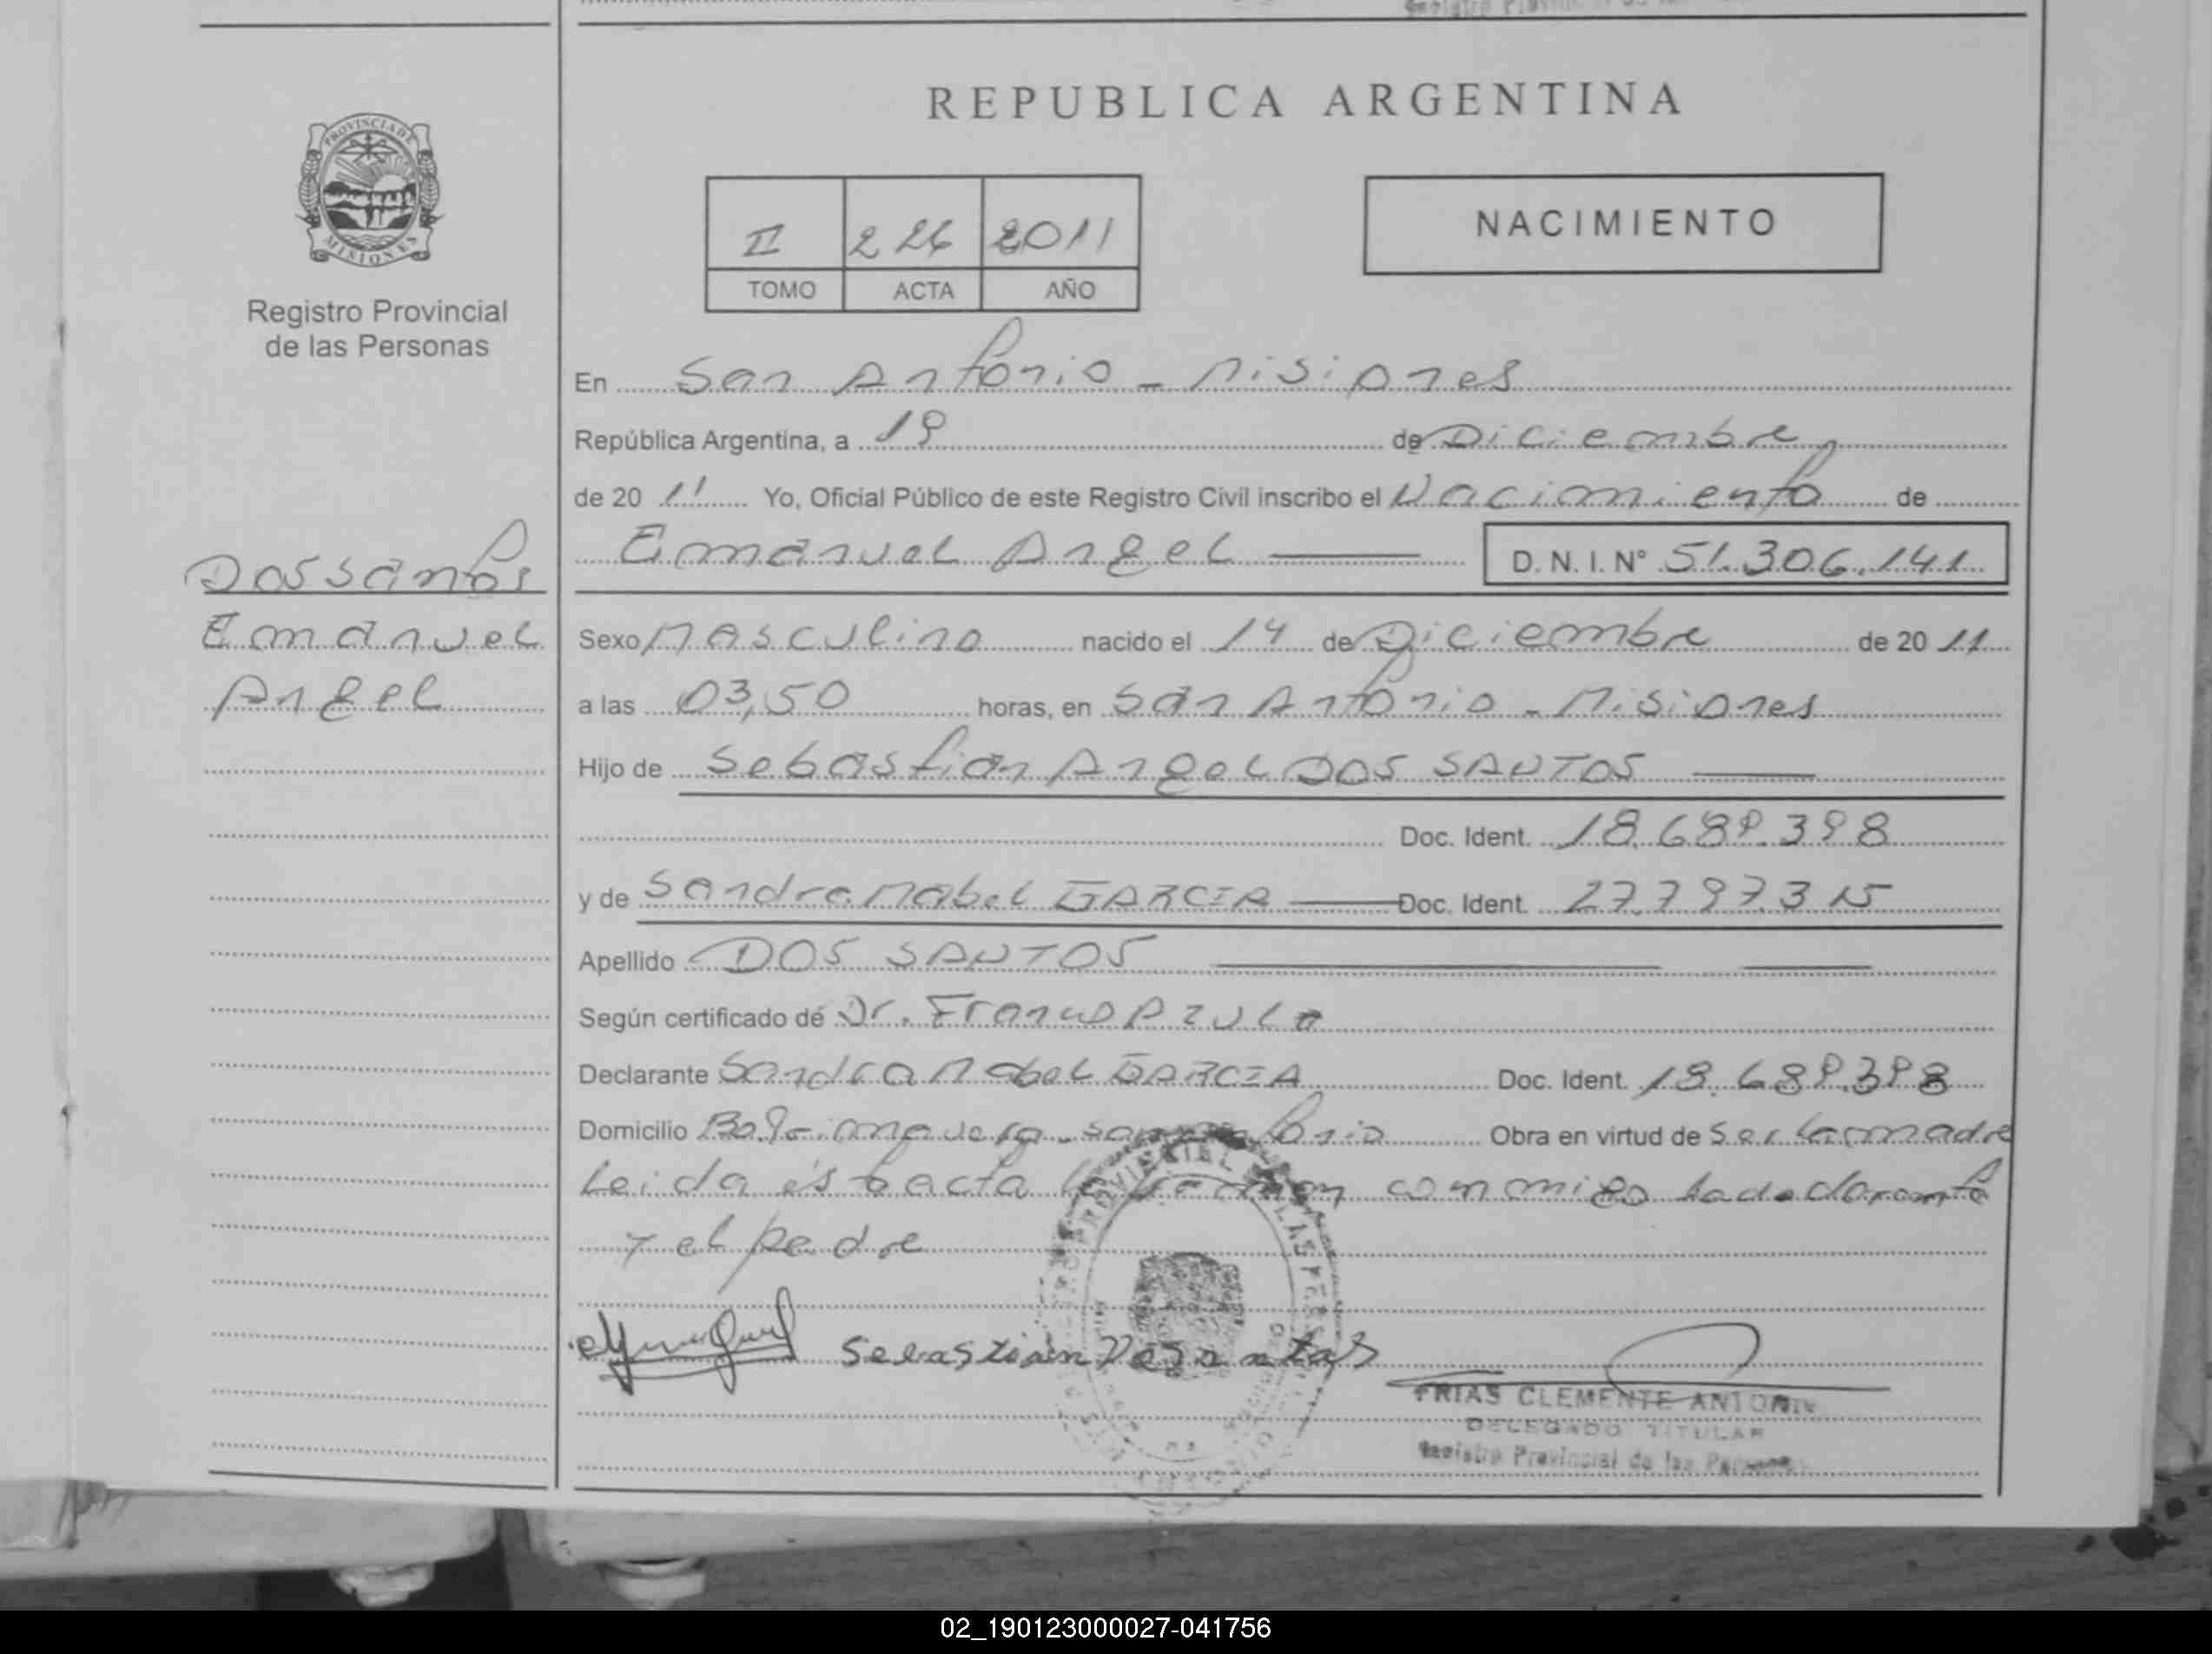 REPUBLICA ARGENTINA
PROVINCIA DE
MISIONES
Registro Provincial
de las Personas
II 226 2011
TOMO ACTA AÑO
NACIMIENTO
En San Antonio - Misiones
República Argentina, a 19 de Diciembre
de 20 11 Yo, Oficial Público de este Registro Civil inscribo el Nacimiento de
Emanuel Angel D. N. I. Nº 51.306.141
Dos santos
Emanuel
Angel
Sexo Masculino nacido el 14 de Diciembre de 20 11
a las 03,50 horas, en San Antonio - Misiones
Hijo de Sebastian Angel DOS SANTOS
Doc. Ident. 18.689.398
y de Sandra Mabel GARCIA Doc. Ident. 27.797.315
Apellido DOS SANTOS
Según certificado de Dr. Franco
Declarante Sandra Mabel GARCIA Doc. Ident. 18.689.398
Domicilio Bº Primavera - San Antonio Obra en virtud de Ser la madre
Leida esta acta la firman conmigo la declarante
y el padre
Sebastián
FRIAS CLEMENTE ANTONIO
DELEGADO TITULAR
Registro Provincial de las Personas
02_190123000027-041756